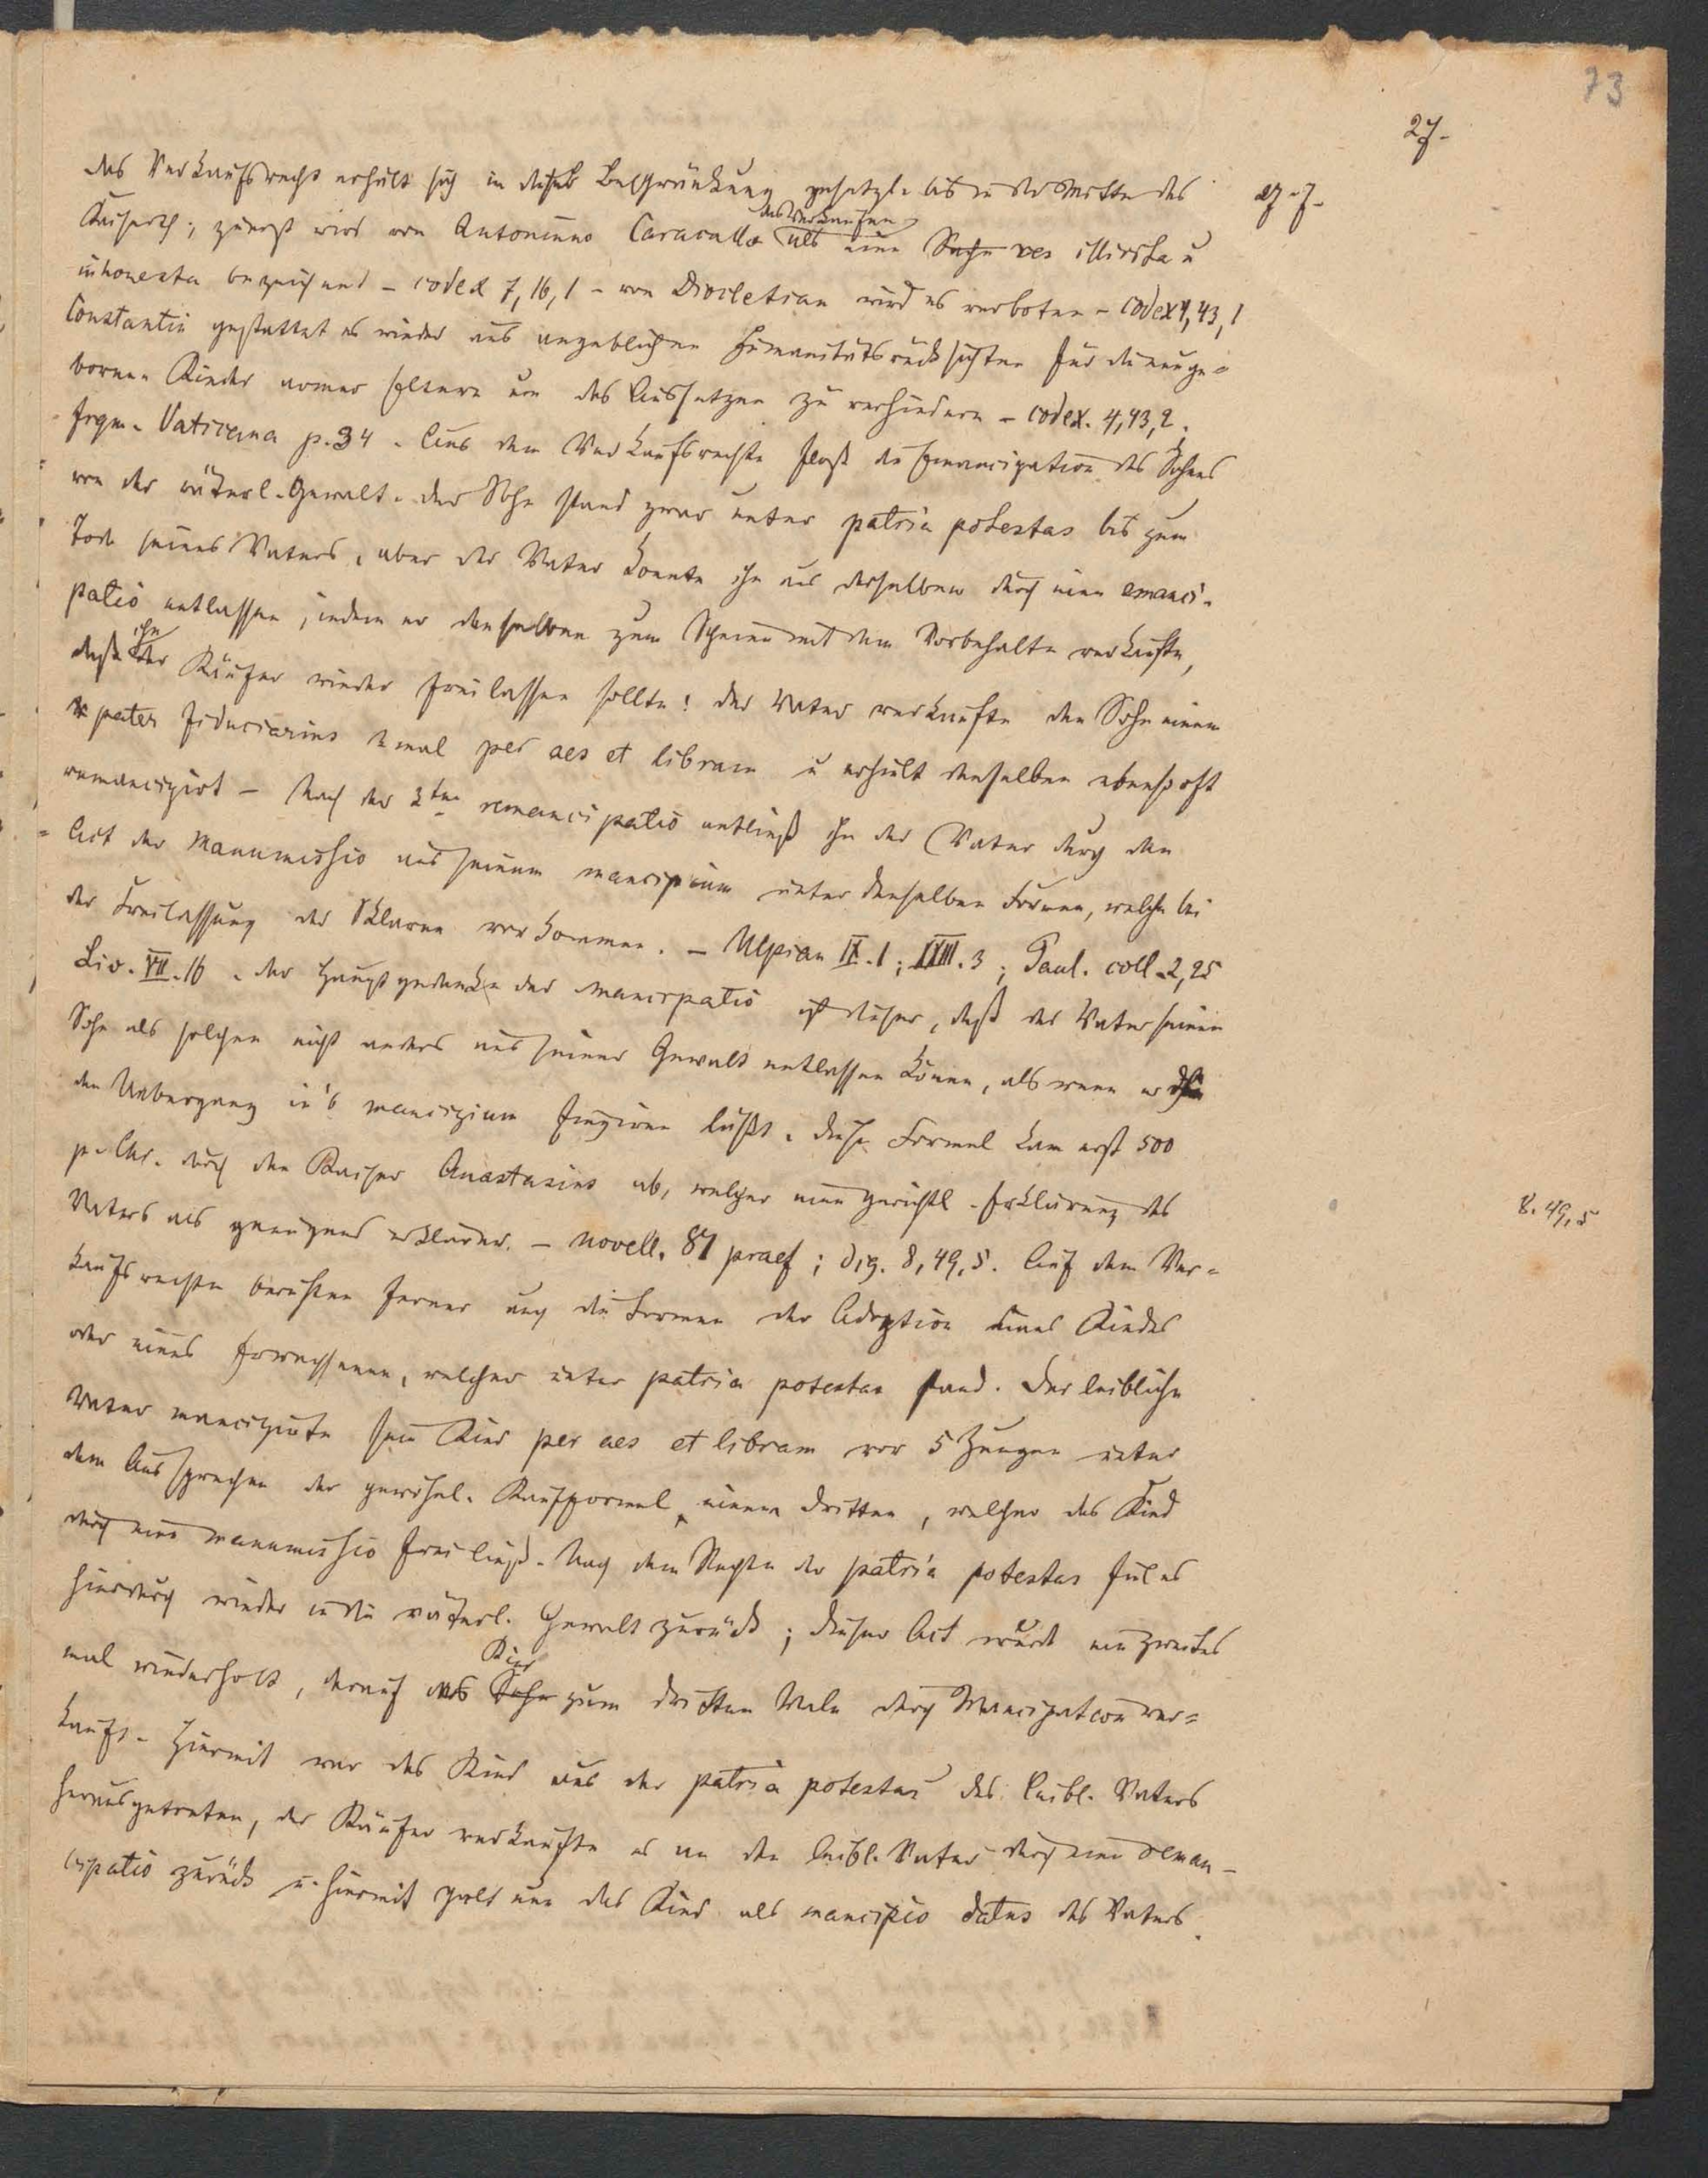 73
27.
das Verkaufsrecht erhält sich in dieser Beschränkung gesetzl. bis in die Mitte des
Kaiserth.; zuerst wird von Antoninus Caracalla das Verkaufen als eine Sache res illicita u
inhonesta bezeichnet – codex 7, 16, 1 – von Diocletian wird es verboten – codex 4, 43, 1
Constantin gestattet es wieder aus angeblichen Humanitätsrücksichten für die neuge=
bornen Kinder armer Eltern um das Aussetzen zu verhindern – codex. 4, 43, 2.
frgm. Vaticana p. 34. Aus dem Verkaufsrechte floß die Emancipation des Sohnes
von der väterl. Gewalt. der Sohn stand zwar unter patria potestas bis zum
Tode seines Vaters, aber der Vater konnte ihn aus derselben durch eine emanci-
patio entlassen, indem er denselben zum Schein mit dem Vorbehalte verkaufte,
daß ihn der Käufer wieder freilassen sollte: der Vater verkaufte den Sohn einem
pater fiduciarius 3 mal per aes et libram u erhielt denselben ebensooft
remancipirt – Nach der 3ten remancipatio entließ ihn der Vater durch den
Act der Manumissio aus seinem mancipium unter denselben Formen, welche bei
der Freilassung der Sklaven vorkommen. – Ulpian IX. 1; XXIII. 3; Paul. coll. 2, 25
Liv. VII. 16. der Hauptgedanke der emancipatio ist dieser, daß der Vater seinen
Sohn als solchen nicht anders aus seiner Gewalt entlassen könne, als wenn er
den Uebergang in's mancipium fingiren läßt. diese Formel kam erst 500
p. Chr. durch den Kaiser Anastasius ab, welcher eine gerichtl. Erklärung des
Vaters als genügend erklärte. – novell. 81 praef; dig. 8, 49, 5. Auf dem Ver=
8. 49, 5
kaufsrechte beruhten ferner auch die Formen der Adoption eines Kindes
oder eines Erwachsenen, welcher unter patria potestas stand. Der leibliche
Vater mancipirte sein Kind per aes et libram vor 5 Zeugen unter
dem Aussprechen der gewöhnl. Kaufformel, einem dritten, welcher das Kind
durch eine manumissio freiließ. Nach dem Rechte der patria potestas fiel es
hierdurch wieder in die väterl. Gewalt zurück; dieser Act wurde ein zweites
mal wiederholt, darauf das Sohn Kind zum dritten Male durch Mancipation ver=
kauft. Hiermit war das Kind aus der patria potestas des leibl. Vaters
herausgetreten, der Käufer verkaufte es an den leibl. Vater durch eine reman-
cipatio zurück u. hiermit galt nun das Kind als mancipio datus des Vaters.